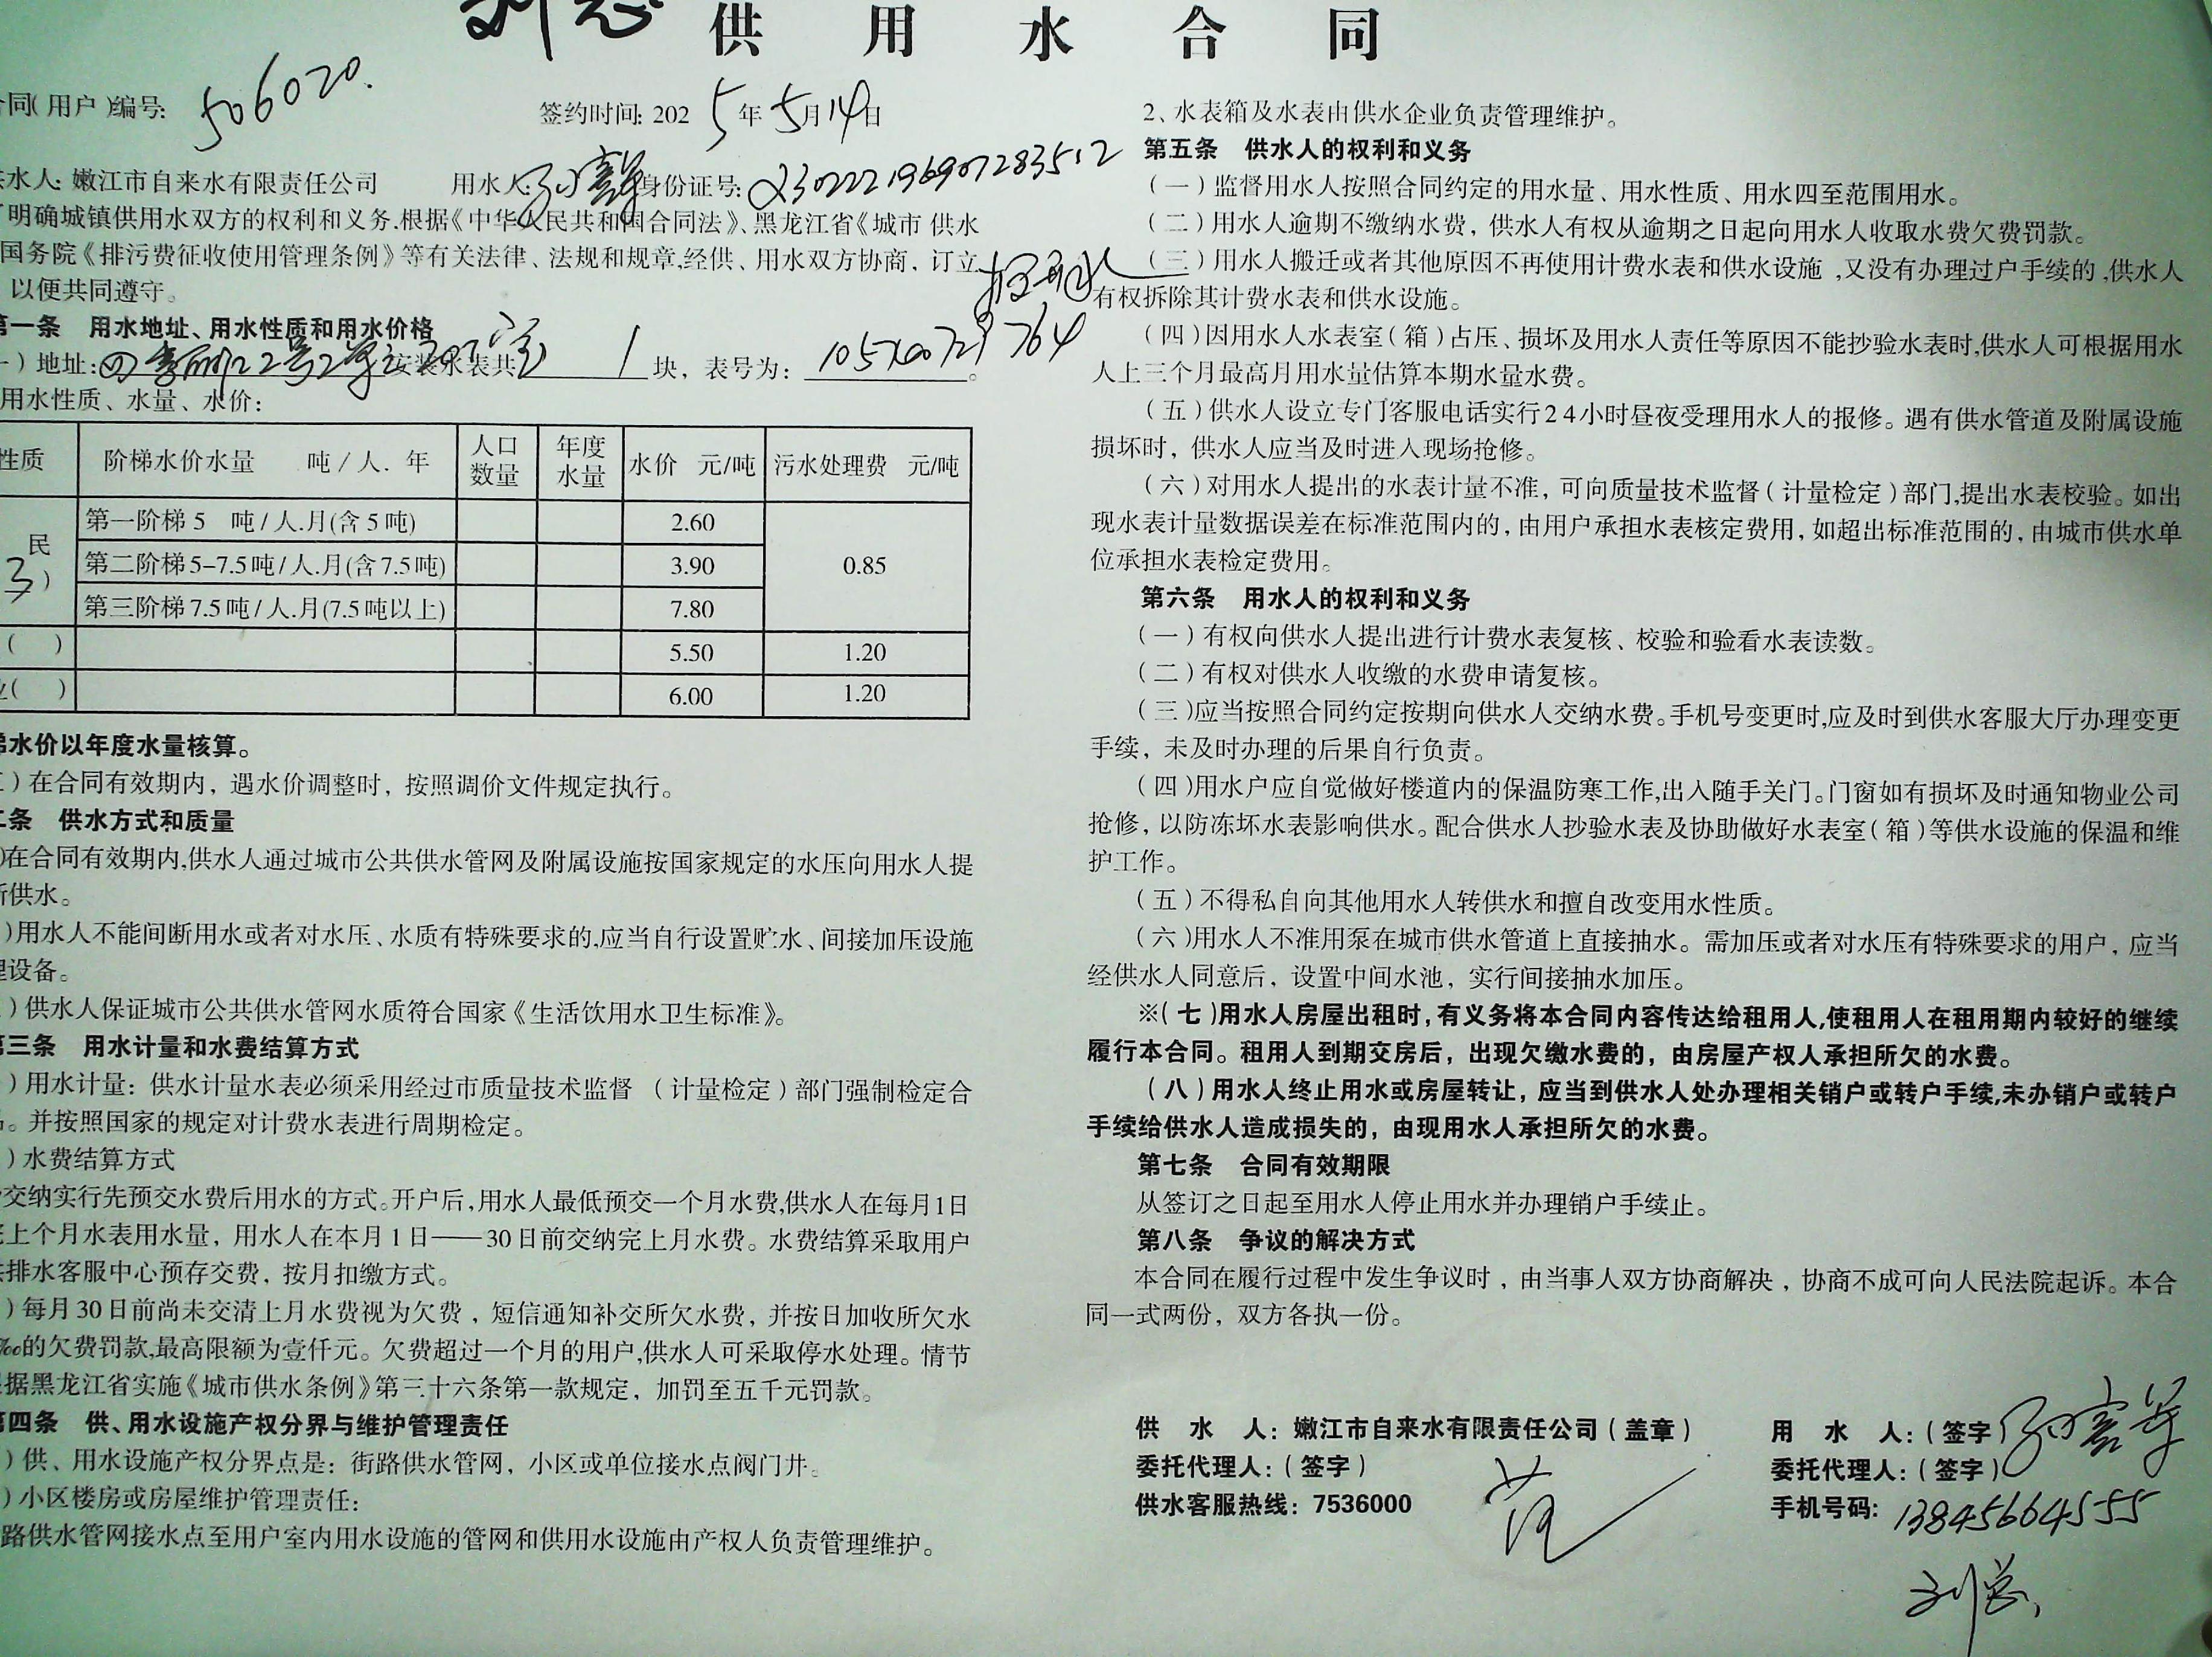 供用水合同
同(用户)编号: 506020.
签约时间: 2025年5月14日
水人: 嫩江市自来水有限责任公司 用水人: 身份证号:
明确城镇供用水双方的权利和义务.根据《中华人民共和国合同法》、黑龙江省《城市 供水
国务院《排污费征收使用管理条例》等有关法律、法规和规章,经供、用水双方协商, 订立
以便共同遵守。
第一条 用水地址、用水性质和用水价格
)地址: 22号2单元 室 安装水表共 1 块, 表号为: 。
用水性质、水量、水价:
性质 阶梯水价水量 吨/人. 年 人口数量 年度水量 水价 元/吨 污水处理费 元/吨
民 第一阶梯 5 吨/人.月(含 5 吨) 2.60 0.85
3) 第二阶梯 5-7.5吨/人.月(含7.5吨) 3.90
第三阶梯 7.5吨/人.月(7.5吨以上) 7.80
( ) 5.50 1.20
( ) 6.00 1.20
水价以年度水量核算。
)在合同有效期内, 遇水价调整时, 按照调价文件规定执行。
条 供水方式和质量
)在合同有效期内,供水人通过城市公共供水管网及附属设施按国家规定的水压向用水人提
供水。
)用水人不能间断用水或者对水压、水质有特殊要求的,应当自行设置贮水、间接加压设施
设备。
)供水人保证城市公共供水管网水质符合国家《生活饮用水卫生标准》。
第三条 用水计量和水费结算方式
)用水计量: 供水计量水表必须采用经过市质量技术监督 (计量检定)部门强制检定合
。并按照国家的规定对计费水表进行周期检定。
)水费结算方式
交纳实行先预交水费后用水的方式。开户后,用水人最低预交一个月水费,供水人在每月1日
上个月水表用水量, 用水人在本月 1 日——30 日前交纳完上月水费。水费结算采取用户
排水客服中心预存交费, 按月扣缴方式。
)每月 30 日前尚未交清上月水费视为欠费, 短信通知补交所欠水费, 并按日加收所欠水
‰的欠费罚款,最高限额为壹仟元。欠费超过一个月的用户,供水人可采取停水处理。情节
据黑龙江省实施《城市供水条例》第三十六条第一款规定, 加罚至五千元罚款。
第四条 供、用水设施产权分界与维护管理责任
)供、用水设施产权分界点是: 街路供水管网, 小区或单位接水点阀门井。
)小区楼房或房屋维护管理责任:
路供水管网接水点至用户室内用水设施的管网和供用水设施由产权人负责管理维护。
2、水表箱及水表由供水企业负责管理维护。
第五条 供水人的权利和义务
(一)监督用水人按照合同约定的用水量、用水性质、用水四至范围用水。
(二)用水人逾期不缴纳水费, 供水人有权从逾期之日起向用水人收取水费欠费罚款。
(三)用水人搬迁或者其他原因不再使用计费水表和供水设施,又没有办理过户手续的,供水人
有权拆除其计费水表和供水设施。
(四)因用水人水表室(箱)占压、损坏及用水人责任等原因不能抄验水表时,供水人可根据用水
人上三个月最高月用水量估算本期水量水费。
(五)供水人设立专门客服电话实行24小时昼夜受理用水人的报修。遇有供水管道及附属设施
损坏时, 供水人应当及时进入现场抢修。
(六)对用水人提出的水表计量不准, 可向质量技术监督(计量检定)部门,提出水表校验。如出
现水表计量数据误差在标准范围内的, 由用户承担水表核定费用, 如超出标准范围的, 由城市供水单
位承担水表检定费用。
第六条 用水人的权利和义务
(一)有权向供水人提出进行计费水表复核、校验和验看水表读数。
(二)有权对供水人收缴的水费申请复核。
(三)应当按照合同约定按期向供水人交纳水费。手机号变更时,应及时到供水客服大厅办理变更
手续, 未及时办理的后果自行负责。
(四)用水户应自觉做好楼道内的保温防寒工作,出入随手关门。门窗如有损坏及时通知物业公司
抢修, 以防冻坏水表影响供水。配合供水人抄验水表及协助做好水表室(箱)等供水设施的保温和维
护工作。
(五)不得私自向其他用水人转供水和擅自改变用水性质。
(六)用水人不准用泵在城市供水管道上直接抽水。需加压或者对水压有特殊要求的用户, 应当
经供水人同意后, 设置中间水池, 实行间接抽水加压。
※(七)用水人房屋出租时,有义务将本合同内容传达给租用人,使租用人在租用期内较好的继续
履行本合同。租用人到期交房后, 出现欠缴水费的, 由房屋产权人承担所欠的水费。
(八)用水人终止用水或房屋转让, 应当到供水人处办理相关销户或转户手续,未办销户或转户
手续给供水人造成损失的, 由现用水人承担所欠的水费。
第七条 合同有效期限
从签订之日起至用水人停止用水并办理销户手续止。
第八条 争议的解决方式
本合同在履行过程中发生争议时, 由当事人双方协商解决, 协商不成可向人民法院起诉。本合
同一式两份, 双方各执一份。
供 水 人: 嫩江市自来水有限责任公司(盖章) 用 水 人:(签字)
委托代理人:(签字) 委托代理人:(签字)
供水客服热线: 7536000 手机号码: 13845664555